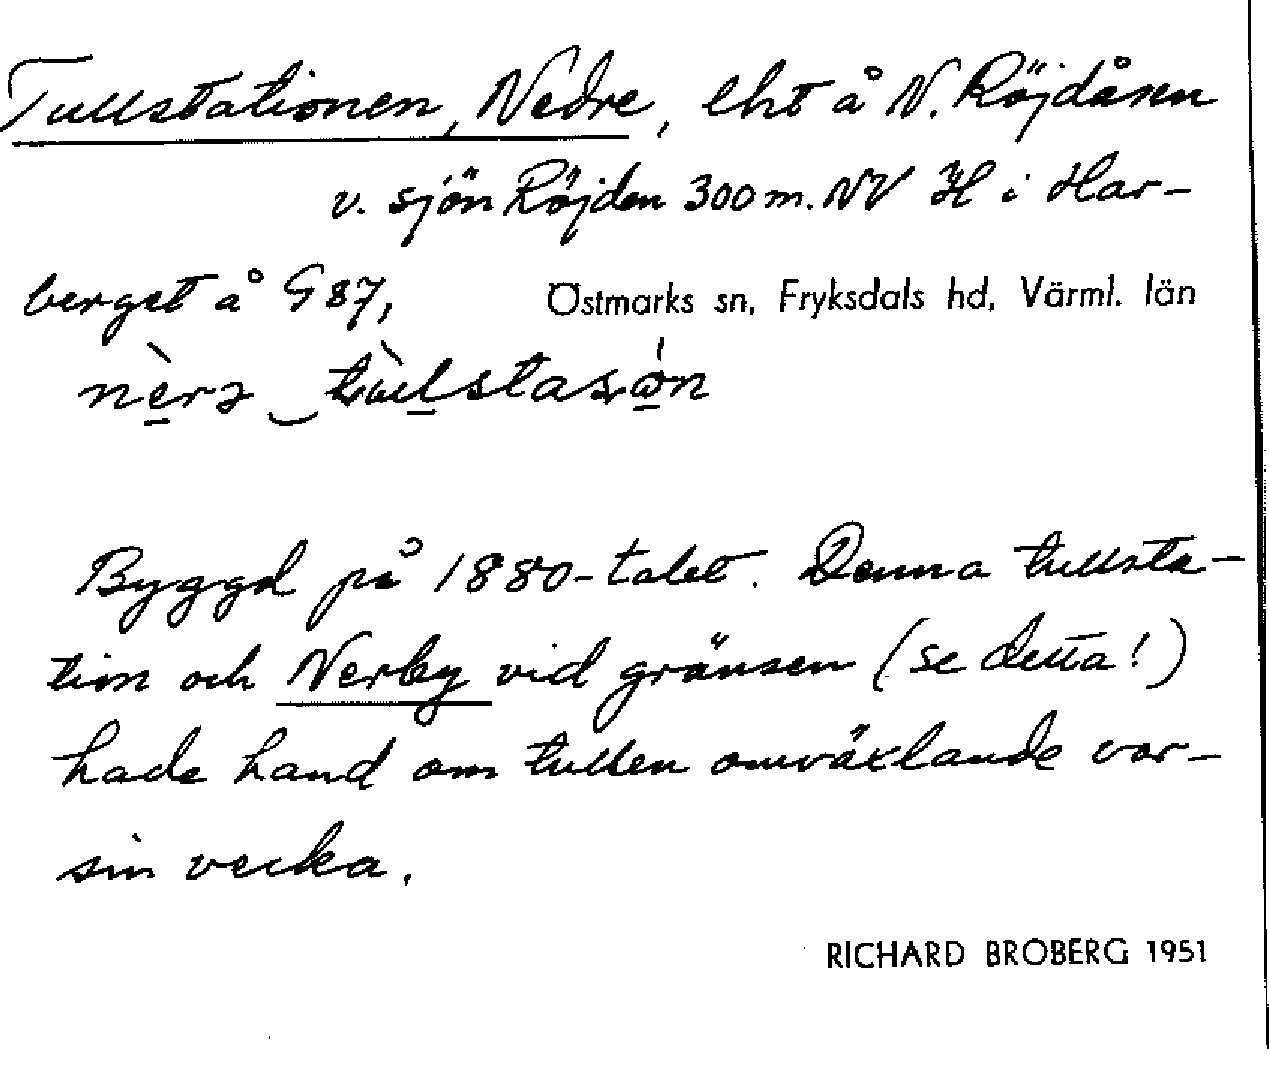 Tullstationen, Nedre, lht å N. Röjdåsen
v. sjön Röjden 300 m. NV H i Har-
berget å G 87, Östmarks sn, Fryksdals hd, Värml. län
Byggd på 1880-talet. Denna tullsta-
tion och Nerby vid gränsen (se detta!)
hade hand om tullen omväxlande var-
sin vecka.
RICHARD BROBERG 1951